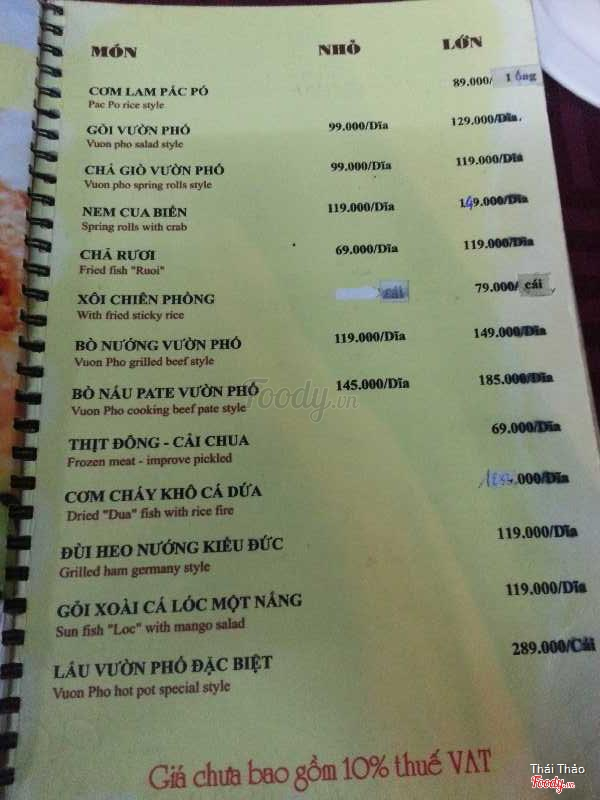 MÓN NHỎ LỚN
CƠM LAM PẮC PÓ 89.000/ 1 ống
Pac Po rice style
GỎI VƯỜN PHỐ 99.000/Dĩa 129.000/Dĩa
Vuon pho salad style
CHẢ GIÒ VƯỜN PHỐ 99.000/Dĩa 119.000/Dĩa
Vuon pho spring rolls style
NEM CUA BIỂN 119.000/Dĩa 149.000/Dĩa
Spring rolls with crab
CHẢ RƯƠI 69.000/Dĩa 119.000/Dĩa
Fried fish "Ruoi"
XÔI CHIÊN PHỒNG cái 79.000/ cái
With fried sticky rice
BÒ NƯỚNG VƯỜN PHỐ 119.000/Dĩa 149.000/Dĩa
Vuon Pho grilled beef style
BÒ NẤU PATE VƯỜN PHỐ 145.000/Dĩa 185.000/Dĩa
Vuon Pho cooking beef pate style
THỊT ĐÔNG - CẢI CHUA 69.000/Dĩa
Frozen meat - improve pickled
CƠM CHÁY KHÔ CÁ DỨA .000/Dĩa
Dried "Dua" fish with rice fire
ĐÙI HEO NƯỚNG KIỂU ĐỨC 119.000/Dĩa
Grilled ham germany style
GỎI XOÀI CÁ LÓC MỘT NẮNG 119.000/Dĩa
Sun fish "Loc" with mango salad
LẨU VƯỜN PHỐ ĐẶC BIỆT 289.000/Cái
Vuon Pho hot pot special style
Giá chưa bao gồm 10% thuế VAT
Foody.vn
Thái Thảo
Foody.vn